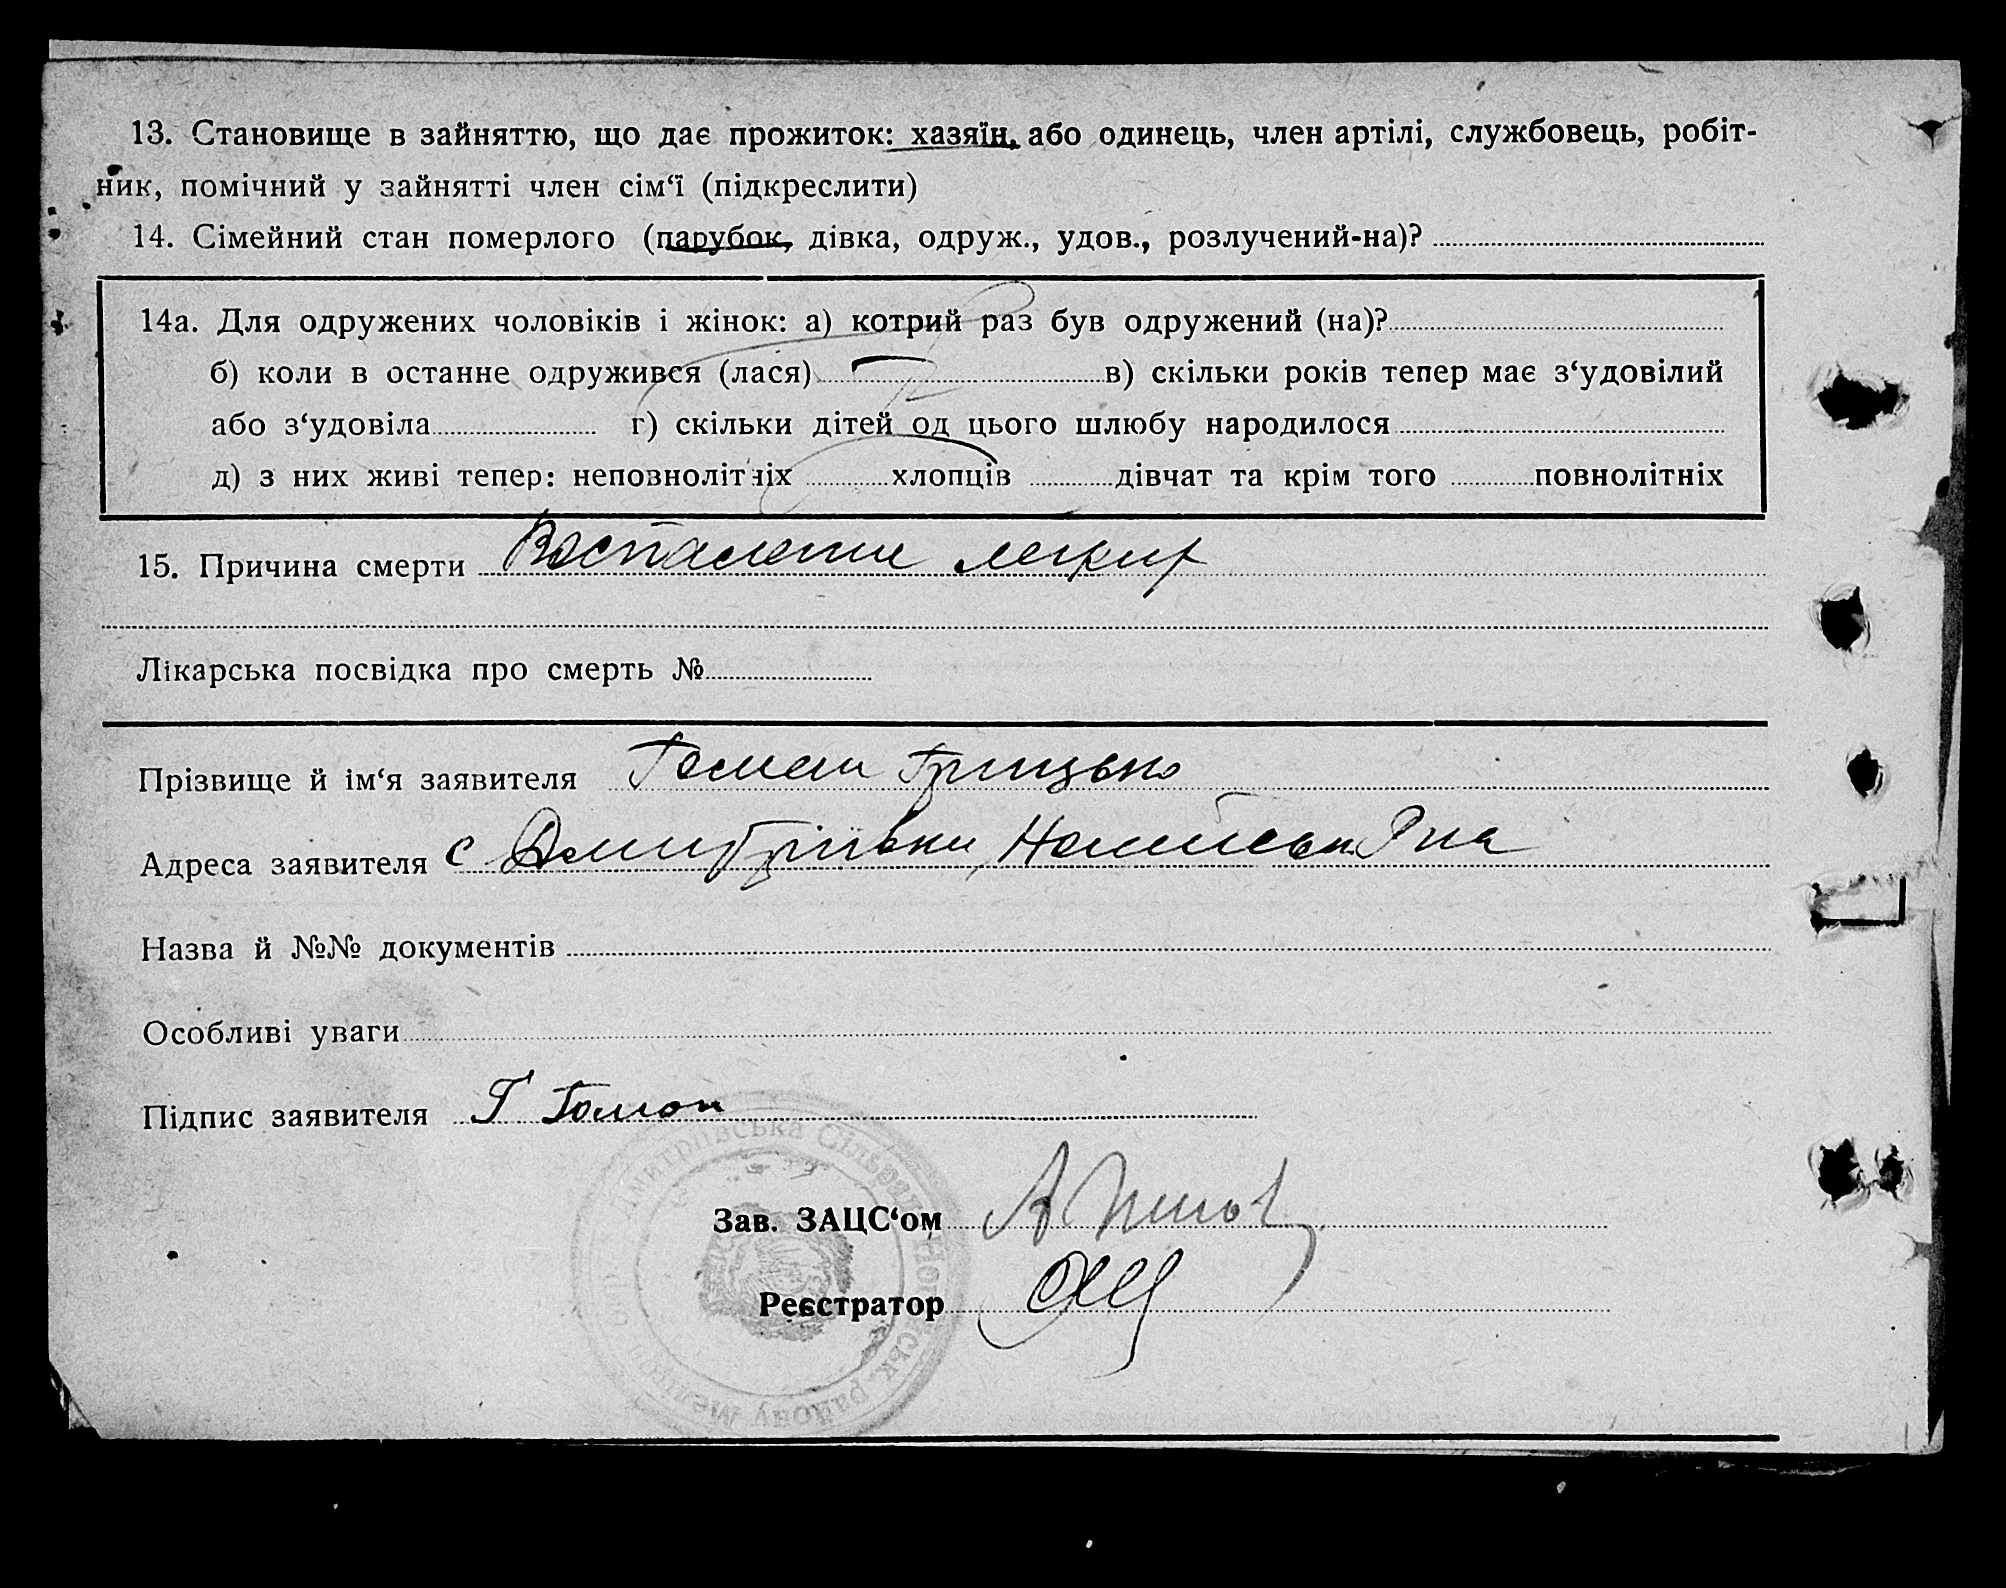 13. Становище в зайняттю, що дає прожиток: хазяїн, або одинець, член артілі, службовець, робіт-
ник, помічний у зайнятті член сім‘ї (підкреслити)
14. Сімейний стан померлого (парубок, дівка, одруж., удов., розлучений-на)?
14а. Для одружених чоловіків і жінок: а) котрий раз був одружений (на)?
б) коли в останнє одружився (лася) в) скільки років тепер має з‘удовілий
або з‘удовіла г) скільки дітей од цього шлюбу народилося
д) з них живі тепер: неповнолітніх хлопців дівчат та крім того повнолітніх
15. Причина смерти Воспаление легких
Лікарська посвідка про смерть №
Прізвище й ім‘я заявителя Гоман Грицько
Адреса заявителя с Дмитріівки
Назва й №№ документів
Особливі уваги
Підпис заявителя Г Гоман
Дмитріївська Сільрада
району
Зав. ЗАЦС‘ом
Реєстратор